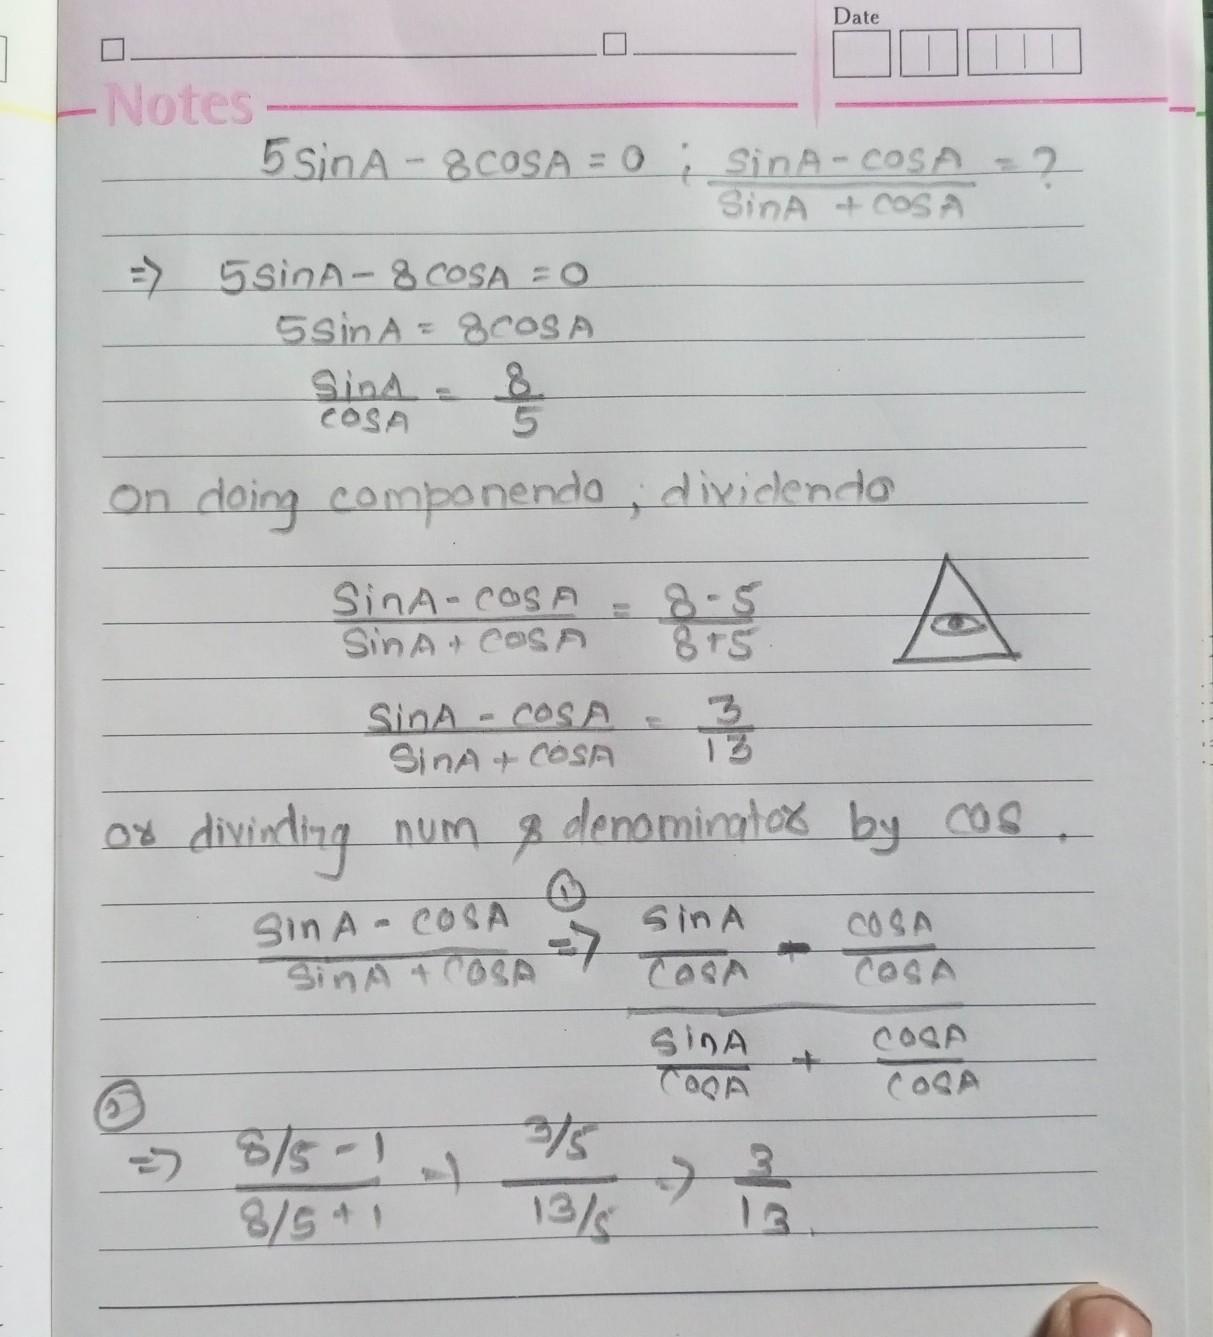 Date
Notes
5sinA - 8cosA = 0 ; sinA - cosA / sinA + cosA = ?
=> 5sinA - 8cosA = 0
5sinA = 8cosA
sinA / cosA = 8 / 5
on doing componendo, dividendo
sinA - cosA / sinA + cosA = 8 - 5 / 8 + 5
sinA - cosA / sinA + cosA = 3 / 13
or divinding num & denominator by cos.
sinA - cosA / sinA + cosA ① => sinA / cosA - cosA / cosA
sinA / cosA + cosA / cosA
② => 8/5 - 1 / 8/5 + 1 => 3/5 / 13/5 => 3 / 13.